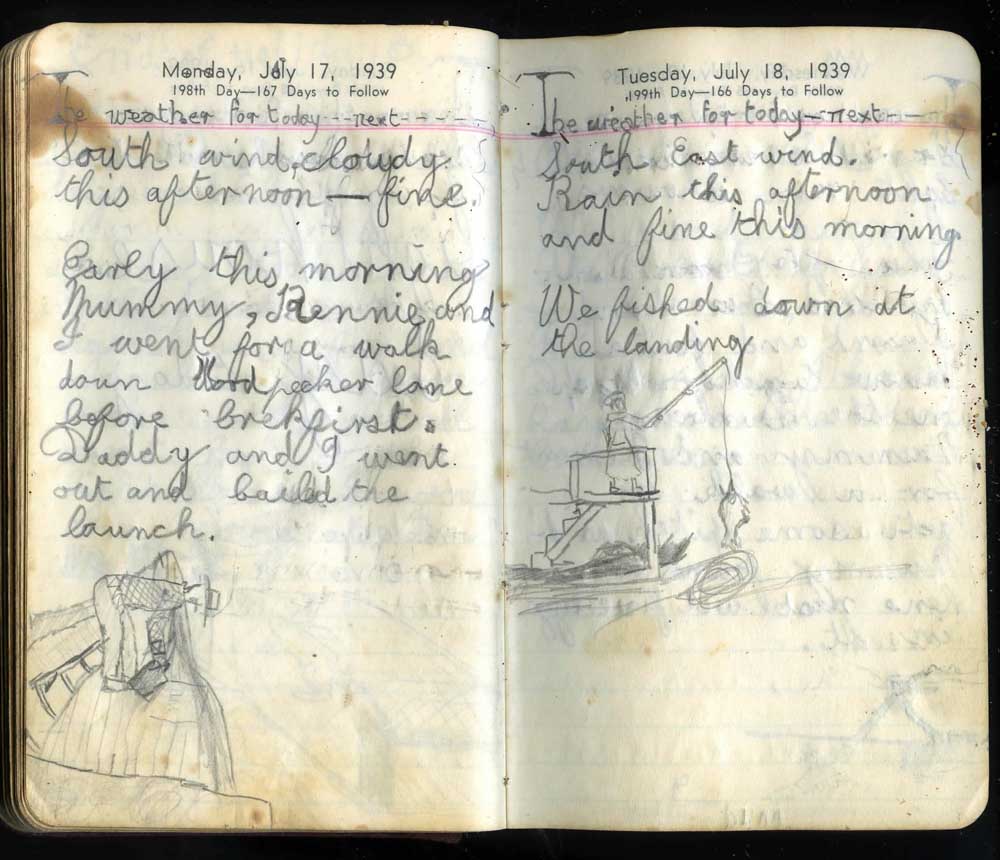 Monday, July 17, 1939
198th Day—167 Days to Follow
The weather for today---next-----
South wind, cloudy
this afternoon — fine.
Early this morning
Mummy, Rennie and
I went for a walk
down Woodpecker lane
before brekfirst.
Daddy and I went
out and bailed the
launch.
Tuesday, July 18, 1939
199th Day—166 Days to Follow
The weather for today--next--
South East wind.
Rain this afternoon
and fine this morning.
We fished down at
the landing